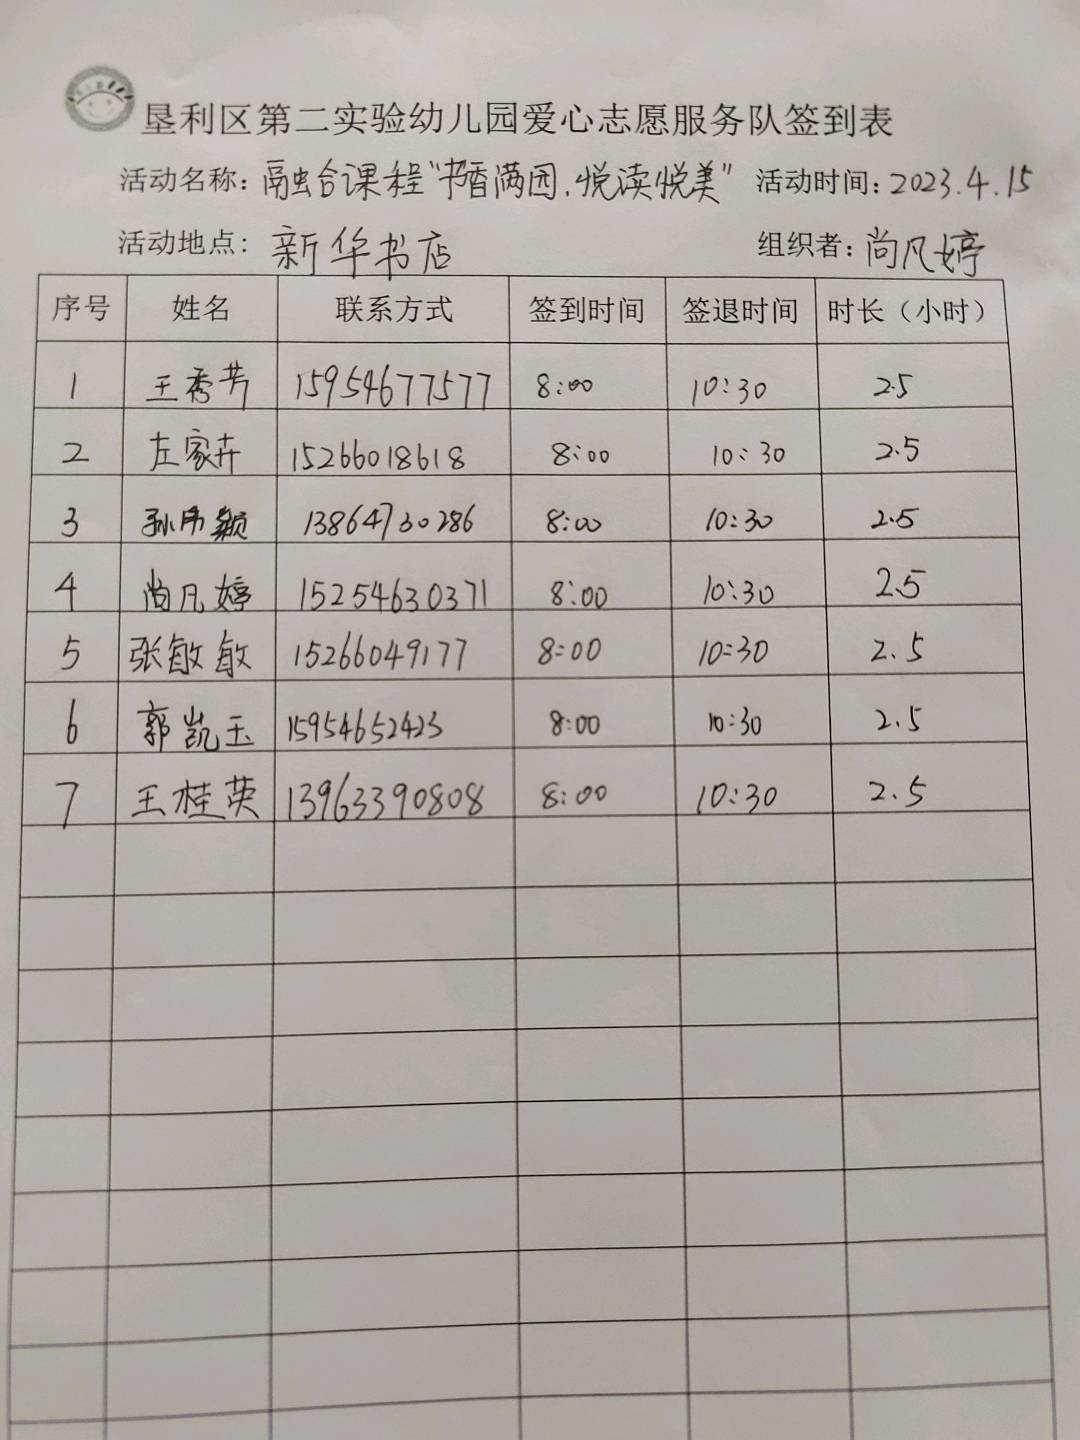 垦利区第二实验幼儿园爱心志愿服务队签到表
活动名称：融合课程“书香满园，悦读悦美” 活动时间：2023.4.15
活动地点：新华书店 组织者：尚凡婷
序号 姓名 联系方式 签到时间 签退时间 时长（小时）
1 王秀芳 15954677577 8:00 10:30 2.5
2 左家卉 15266018618 8:00 10:30 2.5
3 孙 颖 13864730286 8:00 10:30 2.5
4 尚凡婷 15254630371 8:00 10:30 2.5
5 张敏敏 15266049177 8:00 10:30 2.5
6 郭凯玉 15954652423 8:00 10:30 2.5
7 王桂英 13963390808 8:00 10:30 2.5